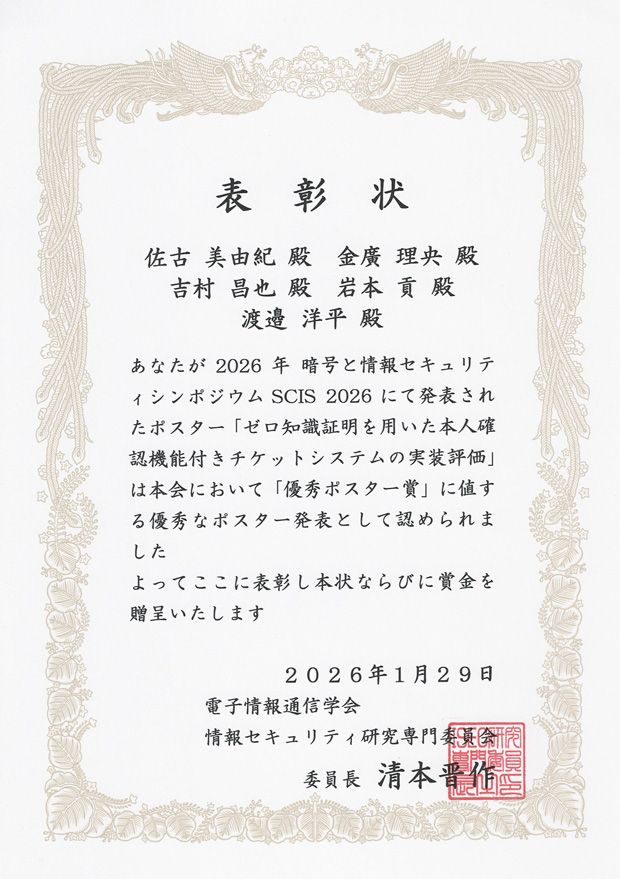 表彰状
佐古 美由紀 殿 金廣 理央 殿
吉村 昌也 殿 岩本 貢 殿
渡邉 洋平 殿
あなたが 2026 年 暗号と情報セキュリテ
ィシンポジウム SCIS 2026 にて発表され
たポスター「ゼロ知識証明を用いた本人確
認機能付きチケットシステムの実装評価」
は本会において「優秀ポスター賞」に値す
る優秀なポスター発表として認められま
した
よってここに表彰し本状ならびに賞金を
贈呈いたします
２０２６年１月２９日
電子情報通信学会
情報セキュリティ研究専門委員会
委員長 清本晋作